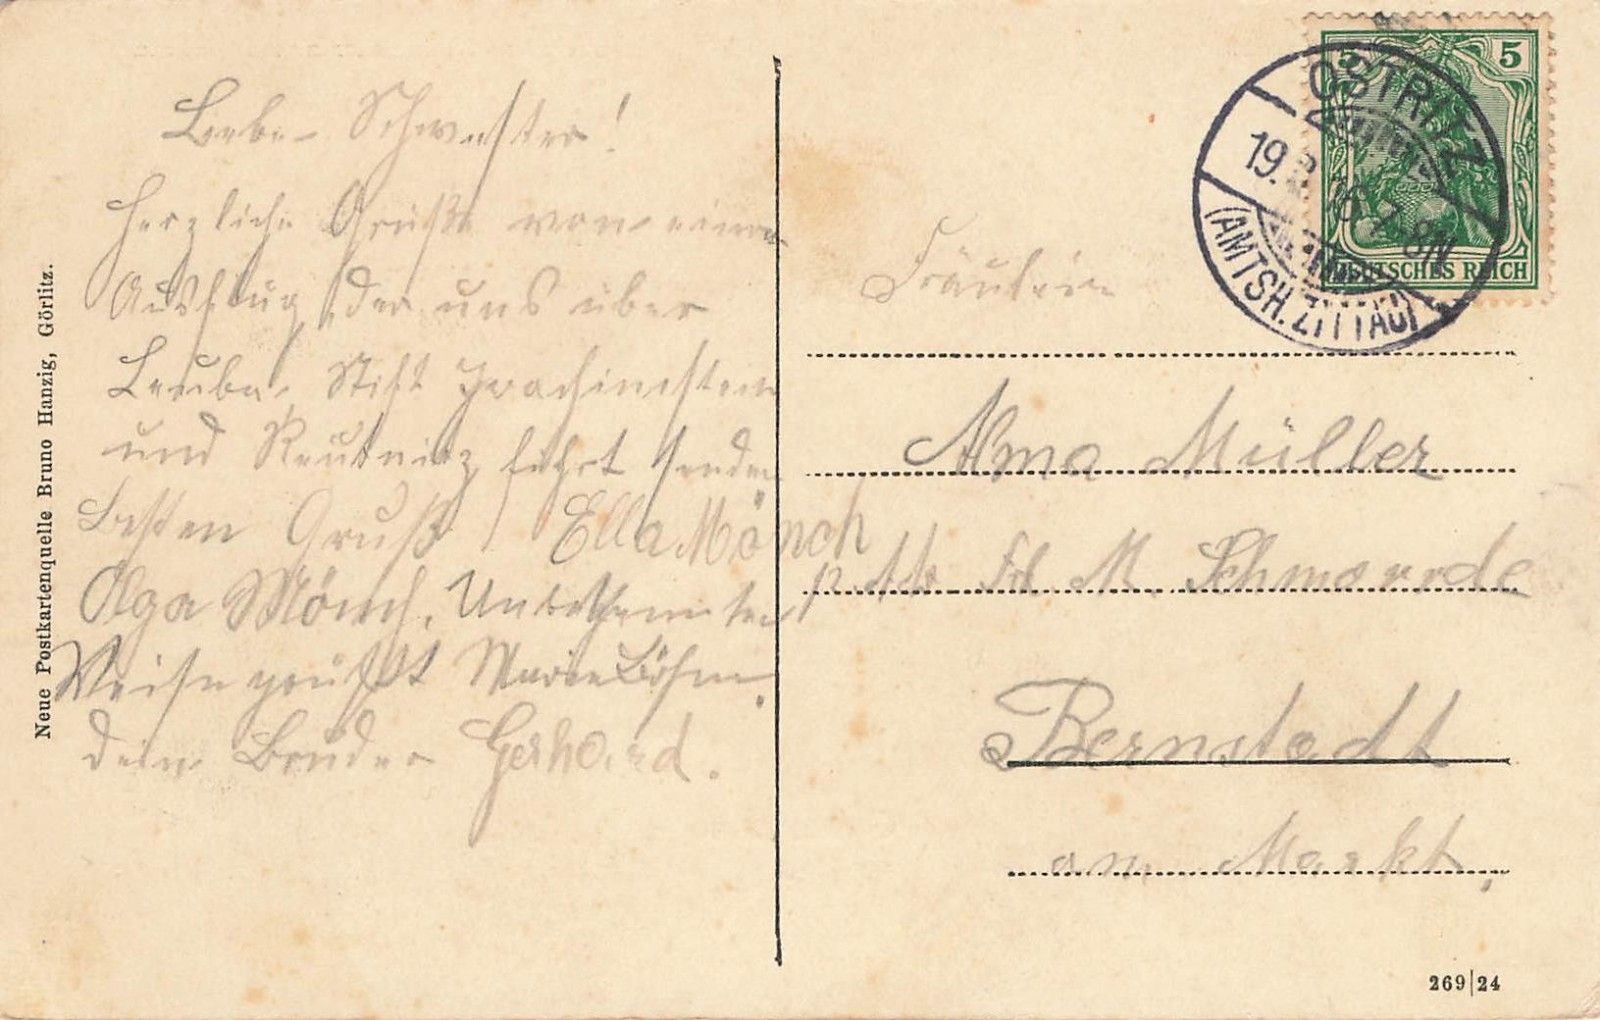 Liebe Schwester!
Herzliche Grüße von einem
Ausflug, der uns über
Leuba, Stift Joachimstein
und Reutnitz führt senden
besten Gruß Ella Mönch
Olga Mönch, Unbekannter
Weise grüßt Marie Böhm.
dein Bruder Gerhard.
Neue Postkartenquelle Bruno Hanzig, Görlitz.
5 5
DEUTSCHES REICH
OSTRITZ
19. 7-8N
(AMTSH. ZITTAU)
Fräulein
Alma Müller
M
Bernstadt
am Markt,
269|24